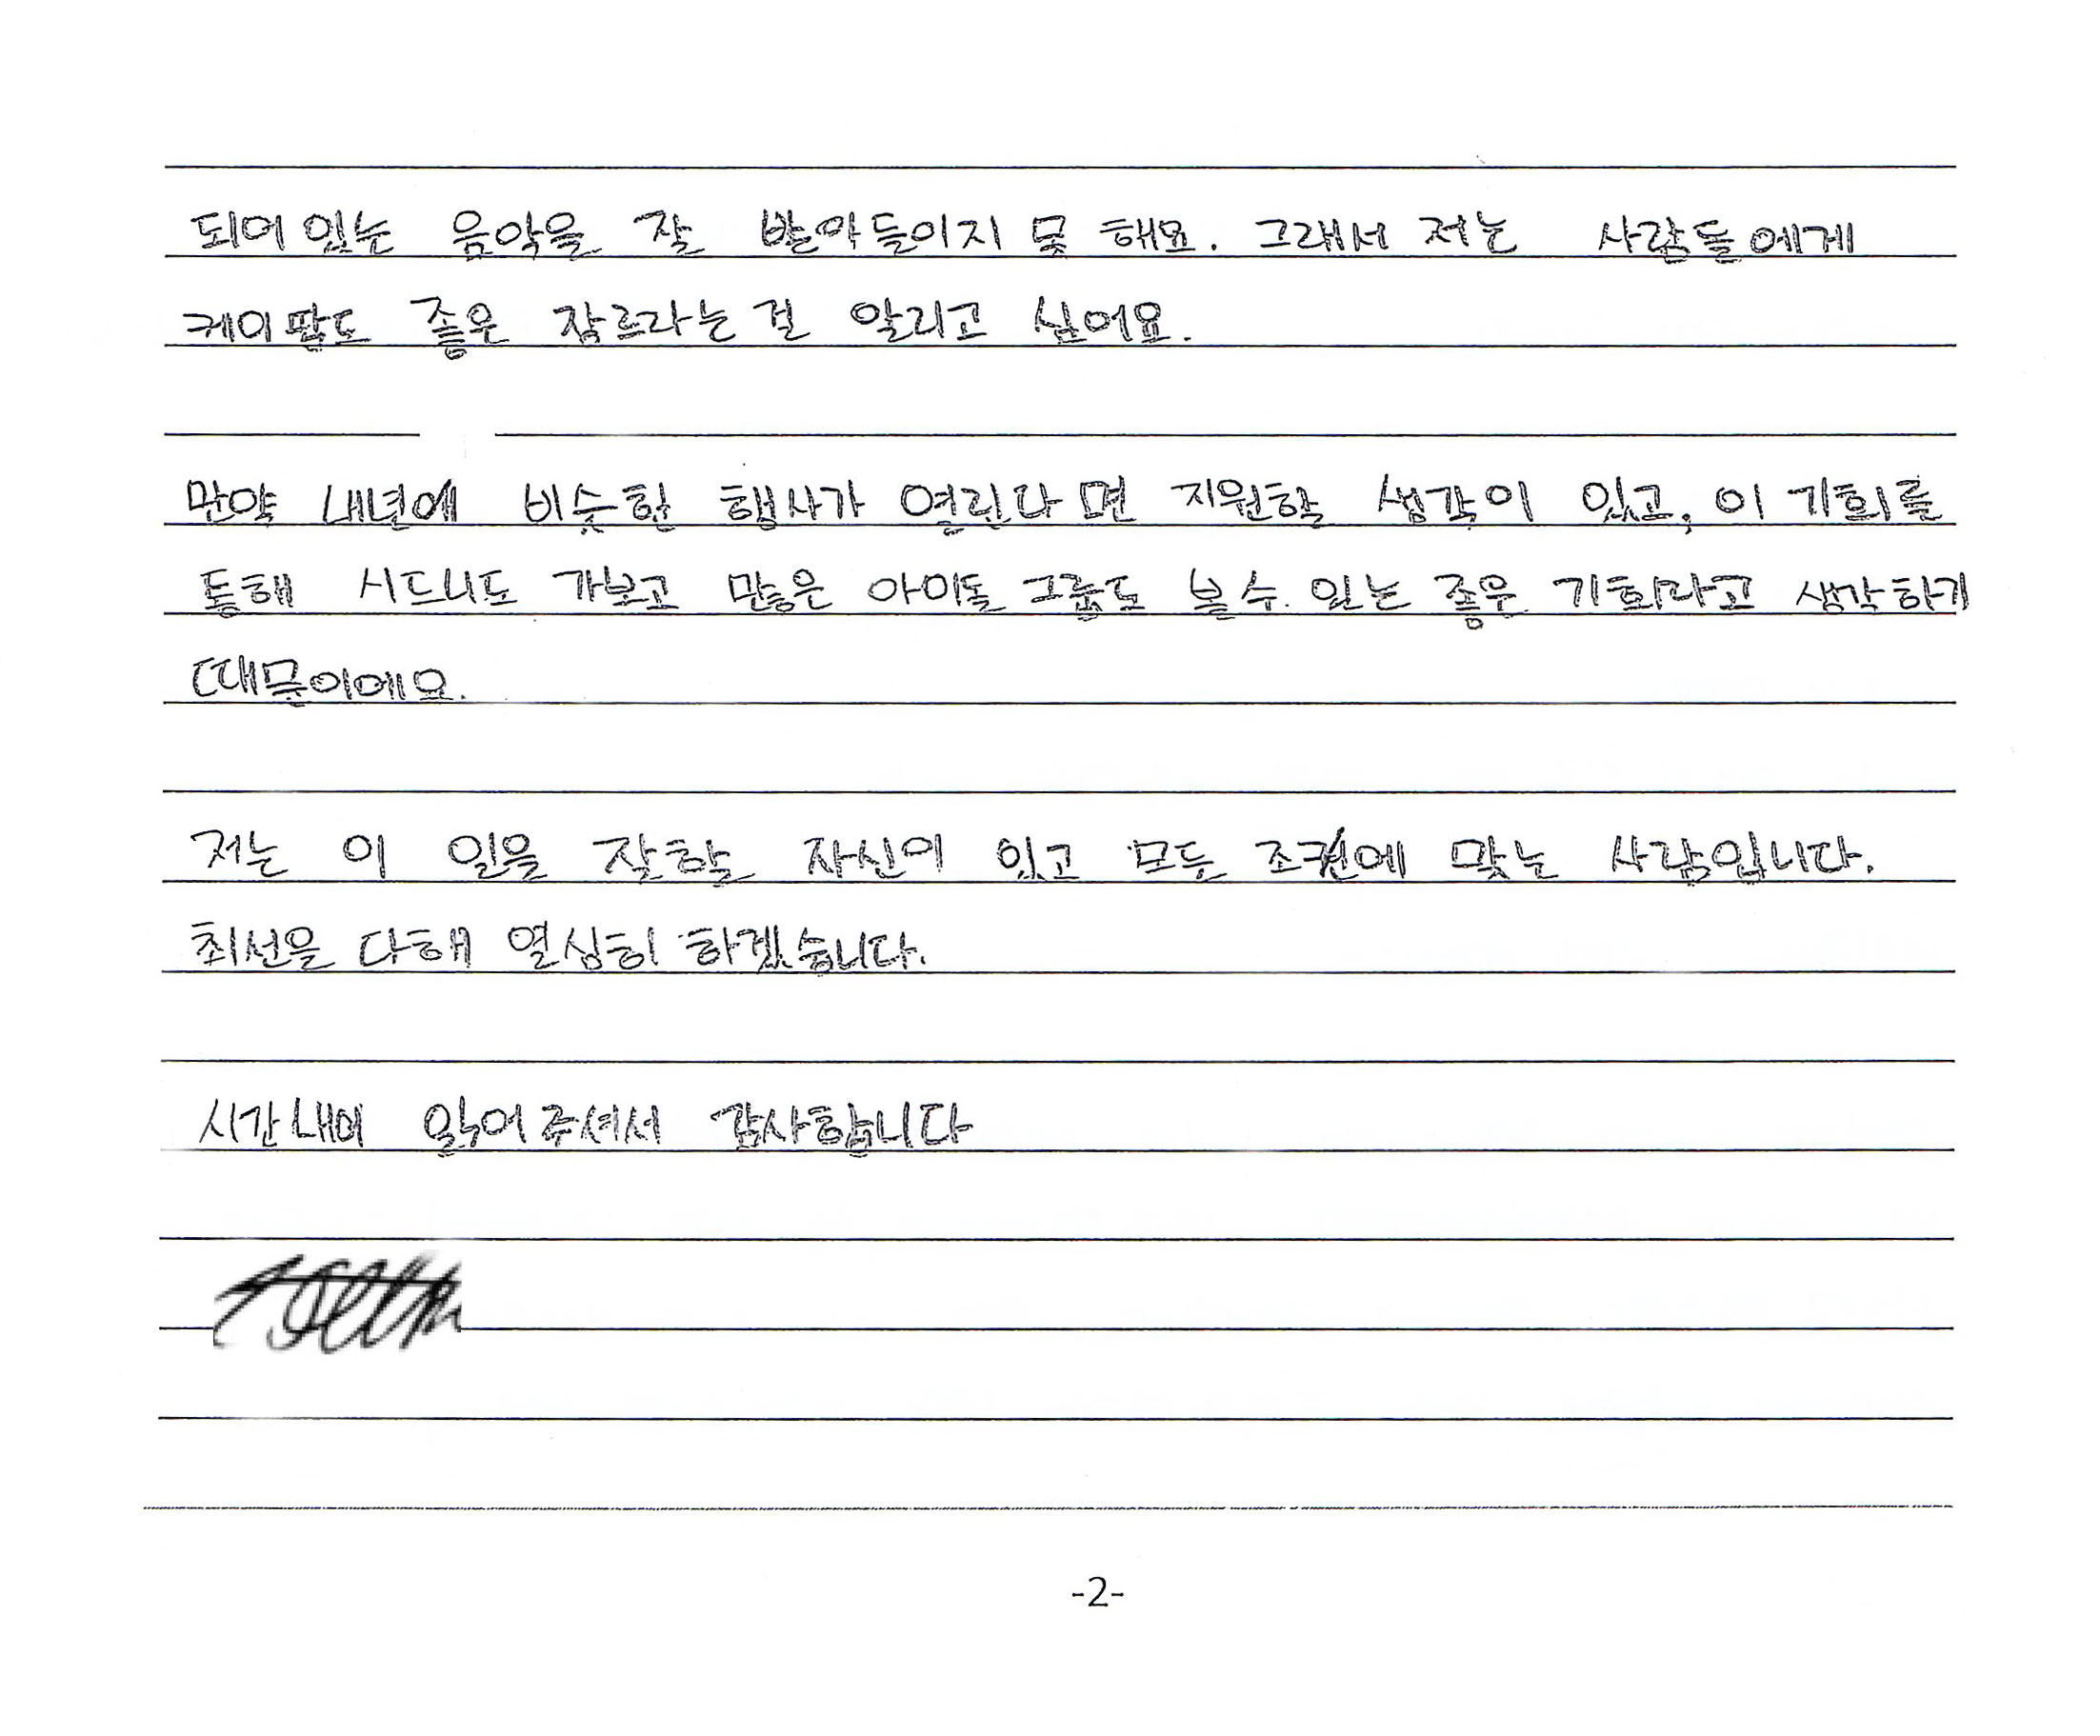 되어있는 음악을 잘 받아들이지 못 해요. 그래서 저는 사람들에게
케이팝도 좋은 장르라는 걸 알리고 싶어요.
만약 내년에 비슷한 행사가 열린다면 지원할 생각이 있고, 이 기회를
통해 시드니도 가보고 많은 아이돌 그룹도 볼 수 있는 좋은 기회라고 생각하기
때문이에요.
저는 이 일을 잘할 자신이 있고 모든 조건에 맞는 사람입니다.
최선을 다해 열심히 하겠습니다.
시간내어 읽어주셔서 감사합니다
-2-